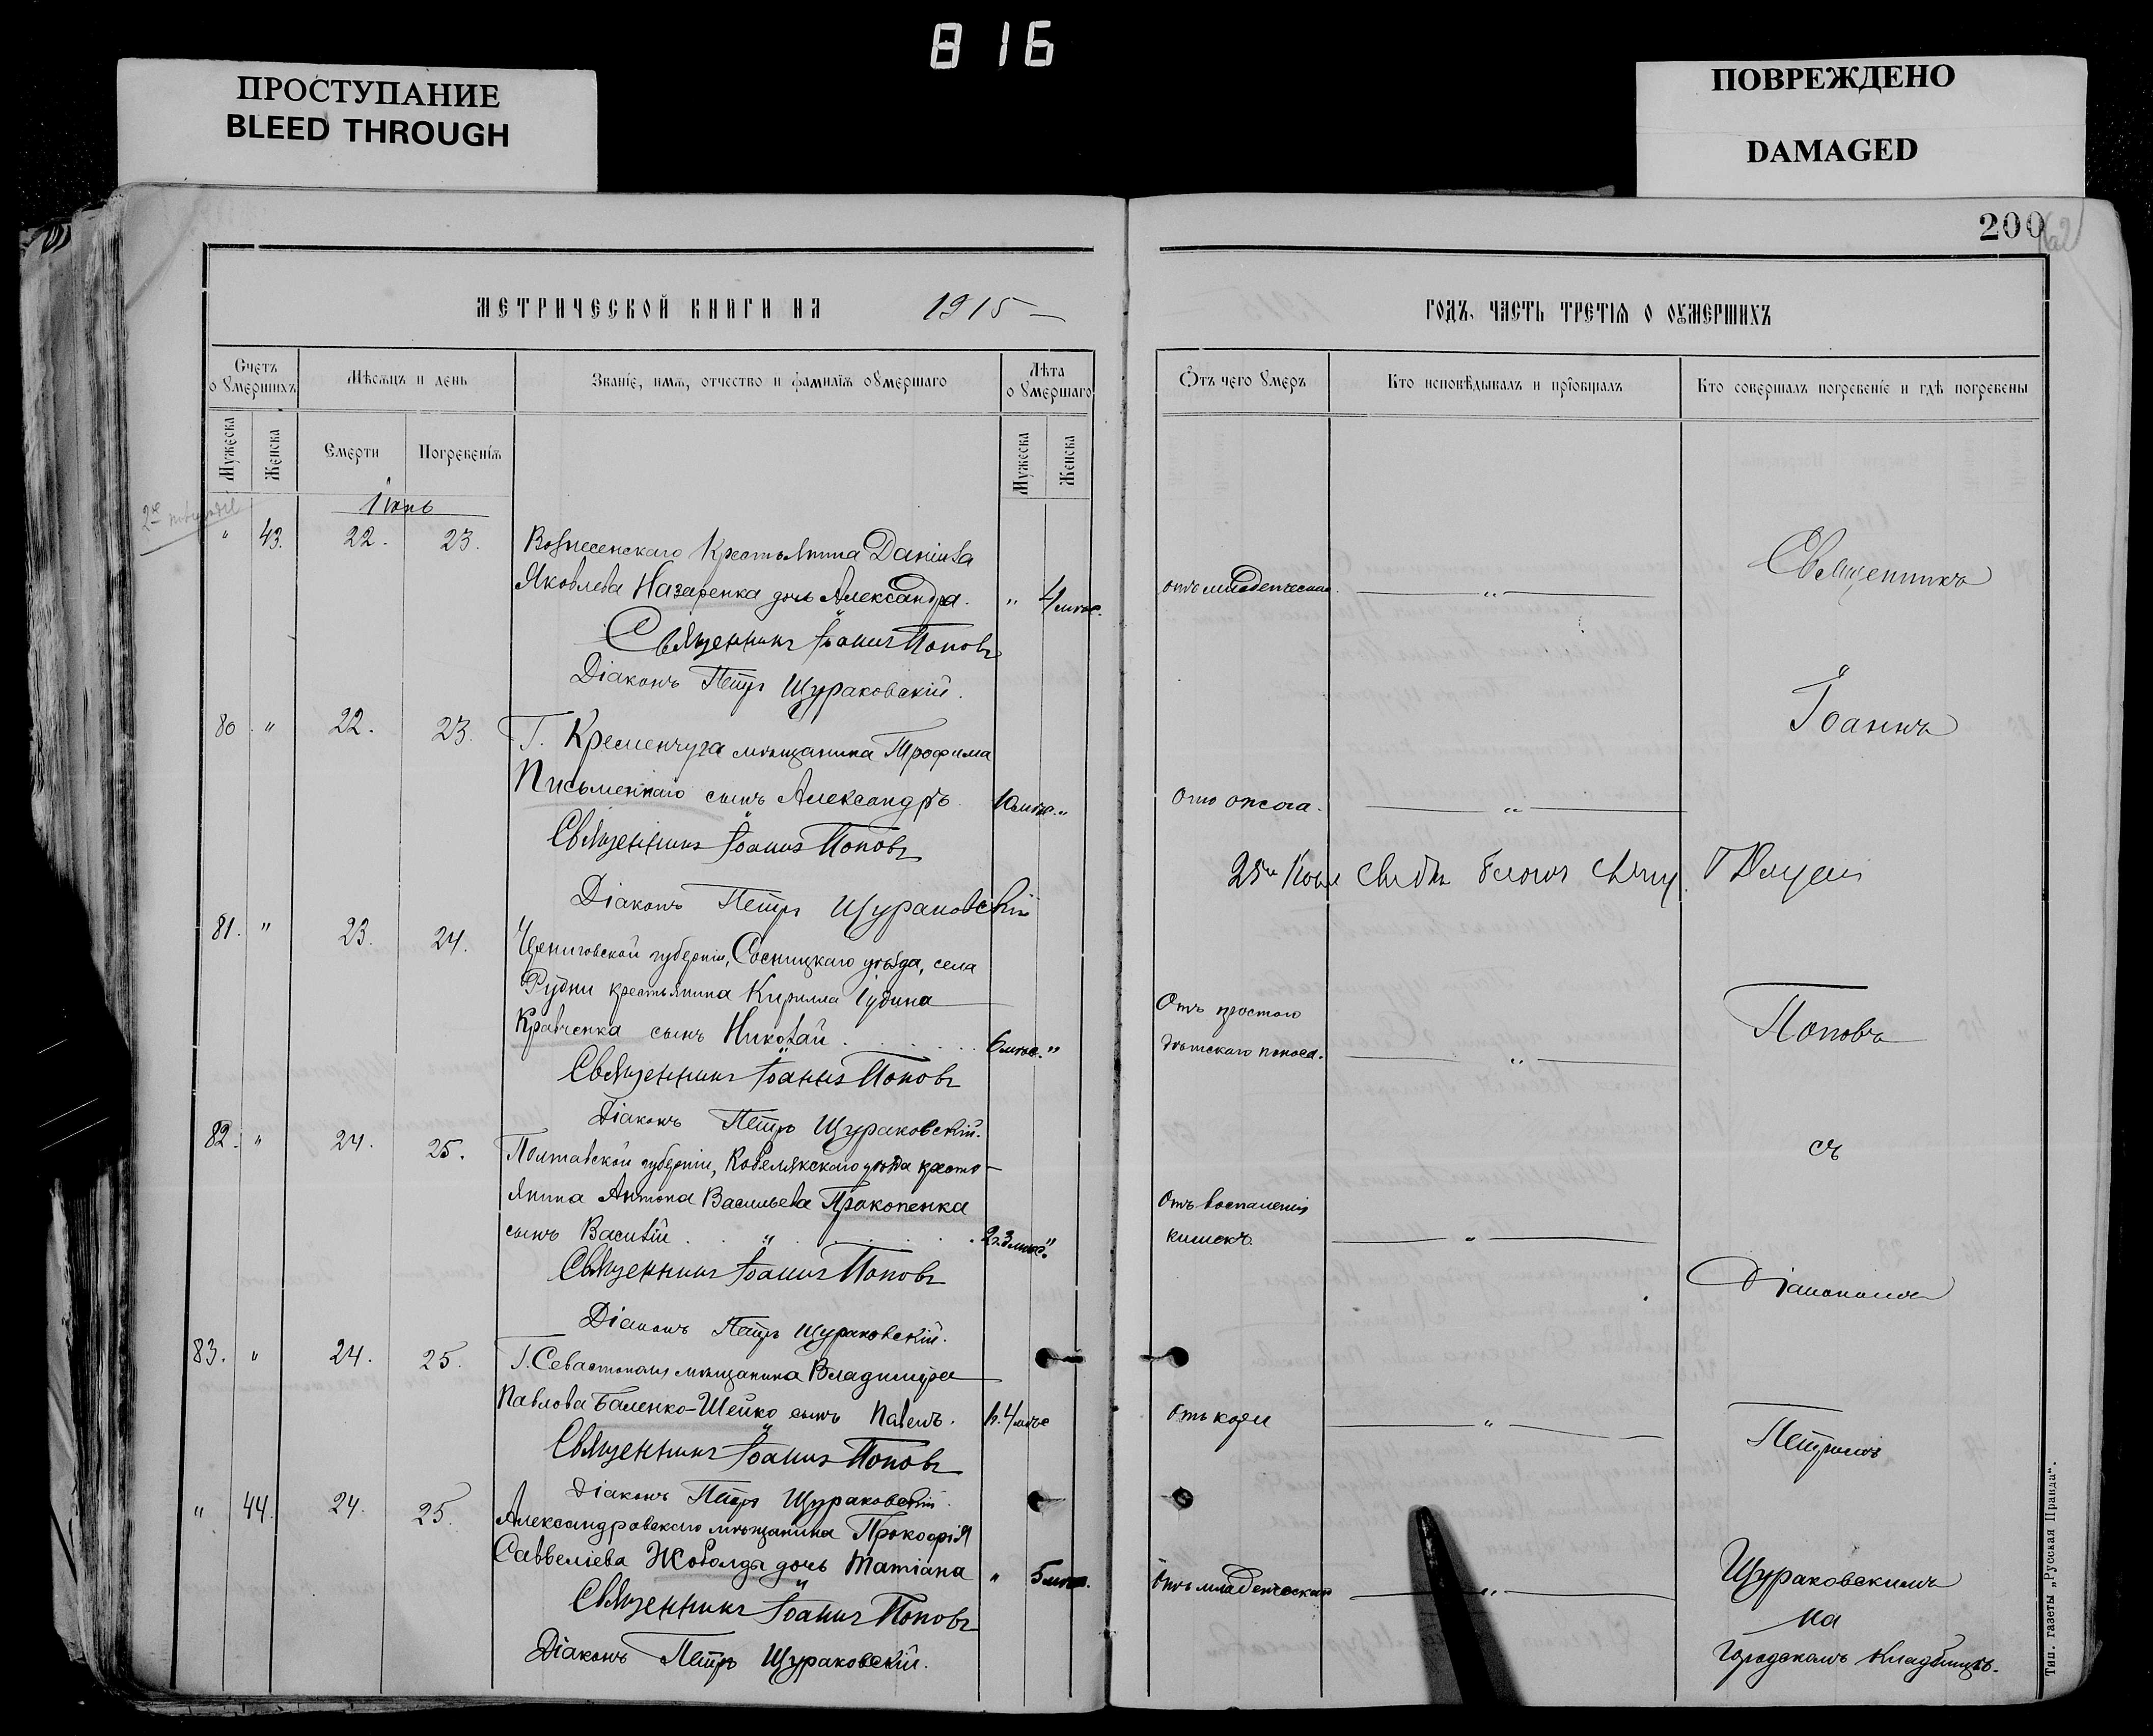 816
ПРОСТУПАНИЕ
BLEED THROUGH
ПОВРЕЖДЕНО
DAMAGED
200
МЕТРИЧЕСКОЙ КНИГИ НА 1915
Счетъ о умершихъ
Мѣсяцъ и день
Званіе, имя, отчество и фамилія оумершаго
Лѣта оумершаго
Мужеска
Женска
Смерти
Погребенія
Мужеска
Женска
Іюнь
" 43. 22. 23. Вознесенскаго Крестьянина Даніила
Яковлева Назаренка дочь Александра. " 4 мѣс.
Священникъ Іоаннъ Поповъ
Діаконъ Петръ Щураковскій.
80 " 22. 23. Г. Кременчуга мѣщанина Трофима
Письменнаго сынъ Александръ 10 мѣс. "
Священникъ Іоаннъ Поповъ
Діаконъ Петръ Щураковскій
81. " 23. 24. Черниговской губерніи, Сосницкаго уѣзда, села
Рудни крестьянина Кирилла Іудина
Кравченка сынъ Николай 6 мѣс. "
Священникъ Іоаннъ Поповъ
Діаконъ Петръ Щураковскій.
82. " 24. 25. Полтавской губерніи, Кобелякскаго уѣзда кресть-
янина Антона Васильева Прокопенка
сынъ Василій 2 г. 3 мѣс. "
Священникъ Іоаннъ Поповъ
Діаконъ Петръ Щураковскій.
83. " 24. 25. Г. Севастополя мѣщанина Владиміра
Павлова Баленко-Шейко сынъ Павелъ. 1 г. 4 мѣс
Священникъ Іоаннъ Поповъ
Діаконъ Петръ Щураковскій.
" 44. 24. 25. Александровскаго мѣщанина Прокофія
Саввеліева Жоболды дочь Татіана " 5 мѣс.
Священникъ Іоаннъ Поповъ
Діаконъ Петръ Щураковскій.
ГОДЪ, ЧАСТЬ ТРЕТІЯ О ОУМЕРШИХЪ
Отъ чего умеръ
Кто исповѣдывалъ и пріобщалъ
Кто совершалъ погребеніе и гдѣ погребены
отъ младенческой "
Священникъ
Іоаннъ
отъ ожога. "
Отъ простого
дѣтскаго поноса. "
Поповъ
съ
Отъ воспаленія
кишекъ. "
Діакономъ
отъ кори "
Петромъ
Отъ младенческой "
Щураковскимъ
на
городскомъ кладбищѣ.
Тип. газеты „Русская Правда“.